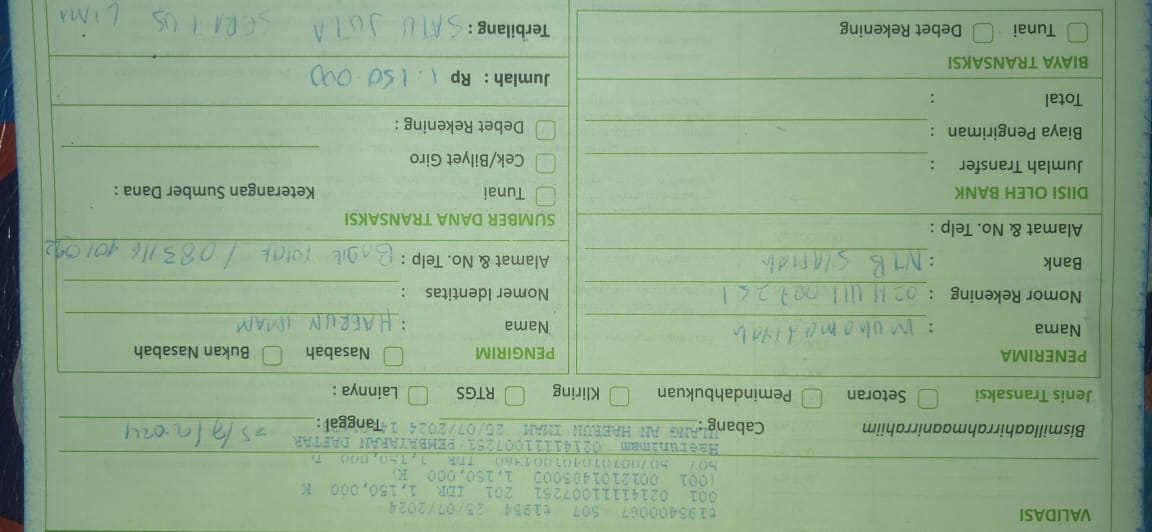 VALIDASI
t195400067 507 t1954 25/07/2024
001 0214111007251 201 IDR 1,150,000 K
(001 0012101405003 1,150,000 K)
Haerunimam 0214111007251/PEMBAYARAN DAFTAR
ULANG AN HAERUN IMAM 25/07/2024
Bismillaahirrahmaanirrahiim Cabang : Tanggal :
Jenis Transaksi Setoran Pemindahbukuan Kliring RTGS Lainnya :
PENERIMA
Nama :
Nomor Rekening :
Bank : NTB Syariah
Alamat & No. Telp :
DIISI OLEH BANK
Jumlah Transfer :
Biaya Pengiriman :
Total :
BIAYA TRANSAKSI
Tunai Debet Rekening
PENGIRIM Nasabah Bukan Nasabah
Nama : HAERUN IMAM
Nomer Identitas :
Alamat & No. Telp :
SUMBER DANA TRANSAKSI
Tunai Keterangan Sumber Dana :
Cek/Bilyet Giro
Debet Rekening :
Jumlah : Rp 1.150.000
Terbilang : SATU JUTA SERATUS LIMA